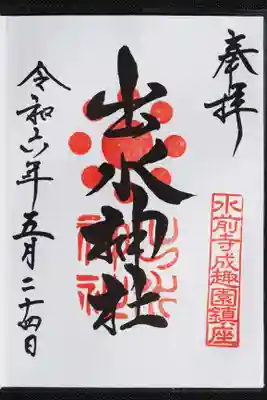 奉拝
水前寺成趣園鎮座
出水神社
令和六年五月二十四日